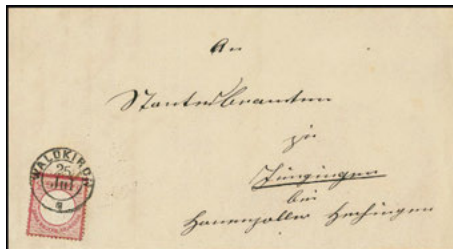 An
Standesbeamten
zu
Jungingen
bei
Hohenzoller Hechingen
WALDKIRCH
25
JUL